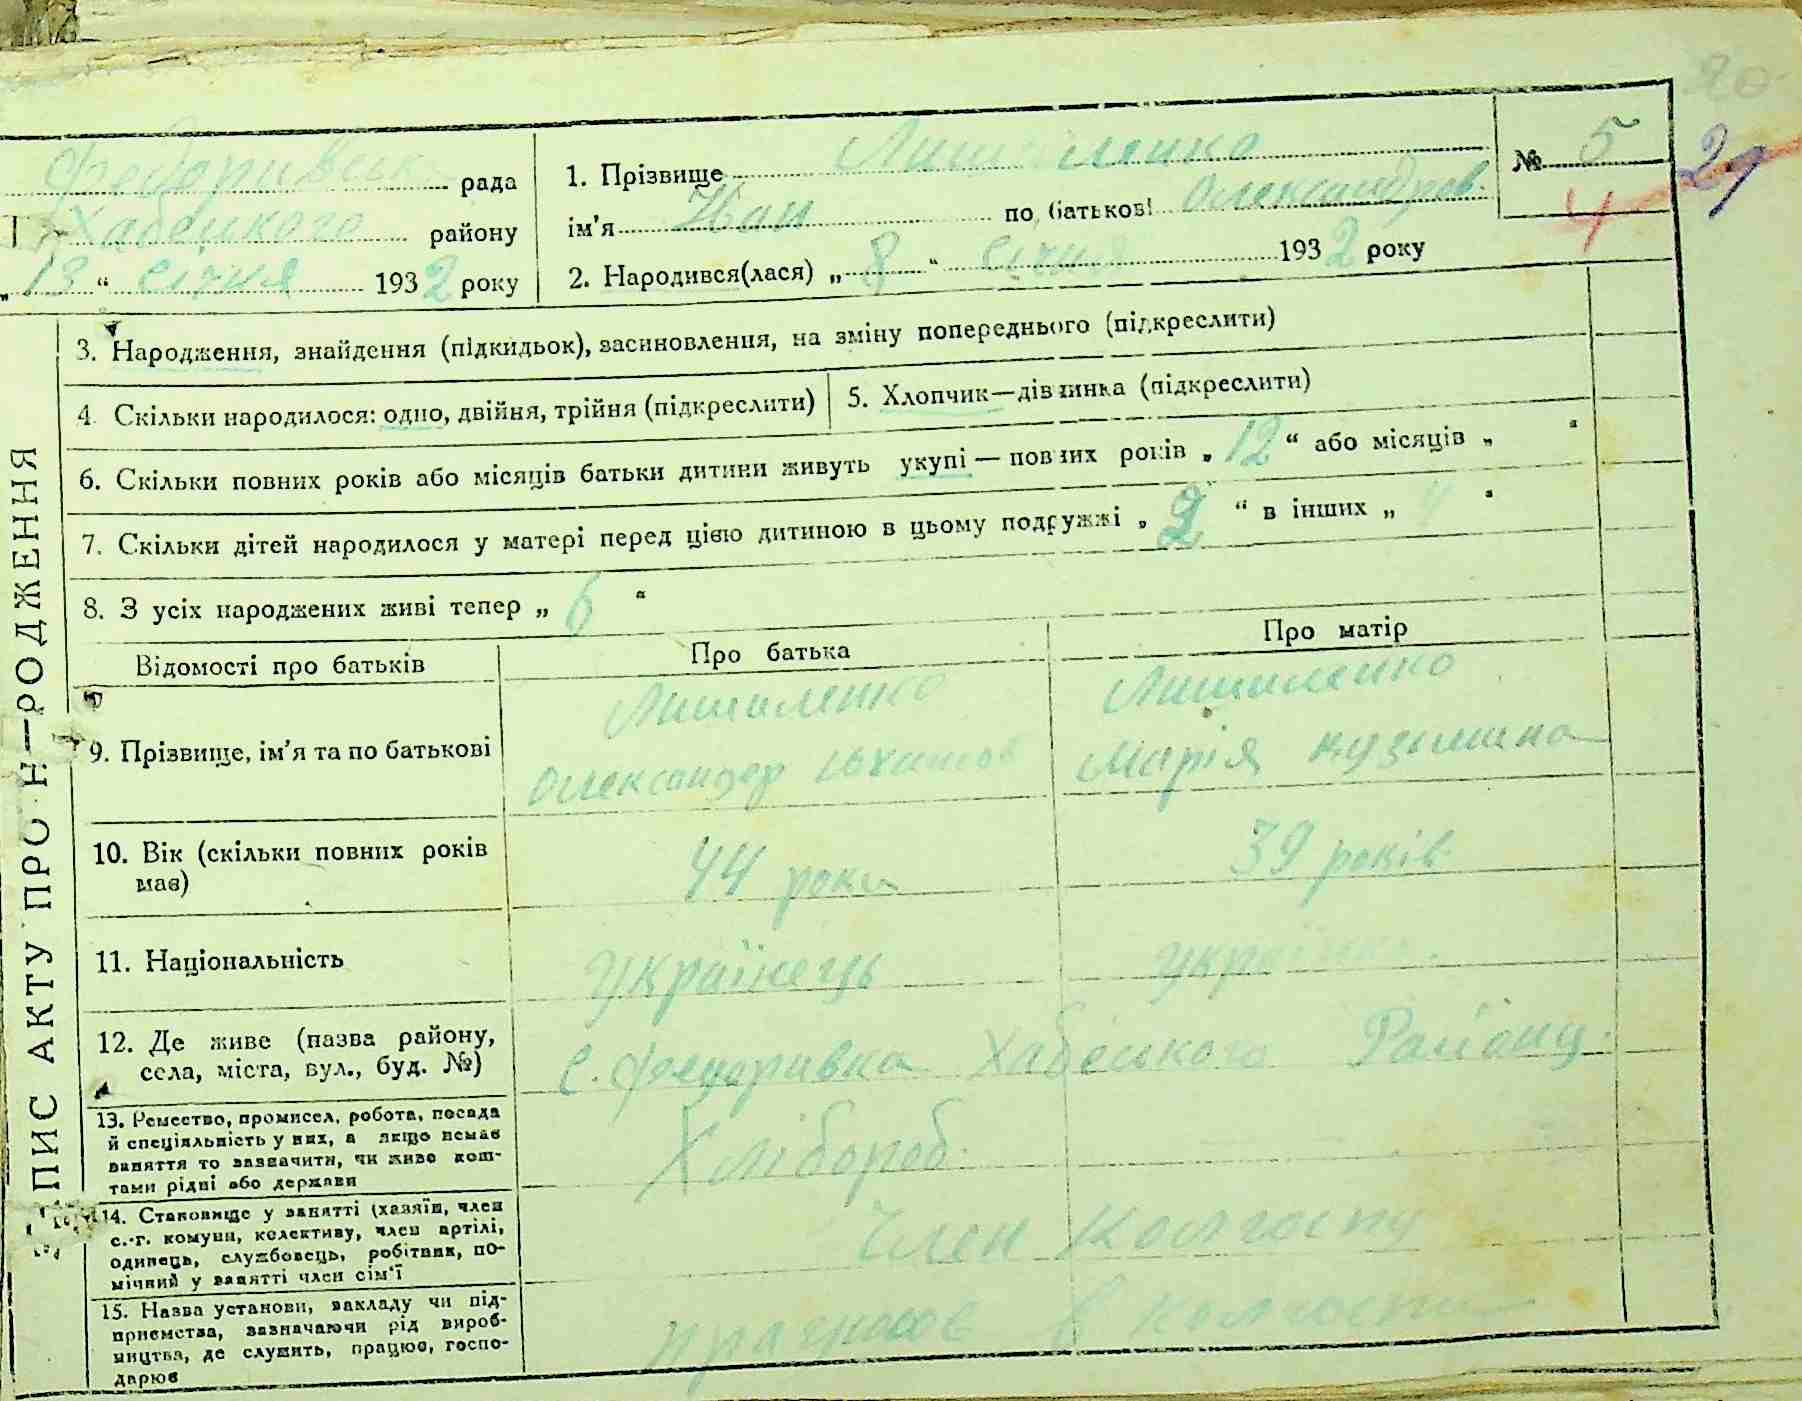 20
Федоривська рада
Хабецкого району
„13“ січня 1932 року
1. Прізвище
ім’я Иван по батькові Олександров.
2. Народився(лася) „8“ січня 1932 року
№ 5
4
29
3. Народження, знайдення (підкидьок), засиновлення, на зміну попереднього (підкреслити)
4. Скільки народилося: одно, двійня, трійня (підкреслити)
5. Хлопчик—дівчинка (підкреслити)
6. Скільки повних років або місяців батьки дитини живуть укупі — повних років „12“ або місяців „ “
7. Скільки дітей народилося у матері перед цією дитиною в цьому подружжі „ “ в інших „ “
8. З усіх народжених живі тепер „6“
Відомості про батьків
Про батька
Про матір
9. Прізвище, ім’я та по батькові
Олександер
Марія Кузьмина
10. Вік (скільки повних років
має)
44 роки
39 років
11. Національність
Українець
Українка
12. Де живе (назва району,
села, міста, вул., буд. №)
с. Федоривка Хабенського Району.
13. Ремество, промисел, робота, посада
й спеціяльність у них, а якщо немає
заняття то зазначити, чи живе кош-
тами рідні або держави
Хлібороб
14. Становище у занятті (хазяїн, член
с.-г. комуни, колективу, член артілі,
одинець, службовець, робітник, по-
мічний у занятті член сім’ї
Член Колгоспу
15. Назва установи, закладу чи під-
приємства, зазначаючи рід вироб-
ництва, де служить, працює, госпо-
дарює
в колгоспи
ПИС АКТУ ПРО Н—РОДЖЕННЯ